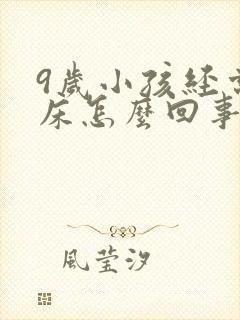 9歲小孩經常
床怎麼回事
風莹汐